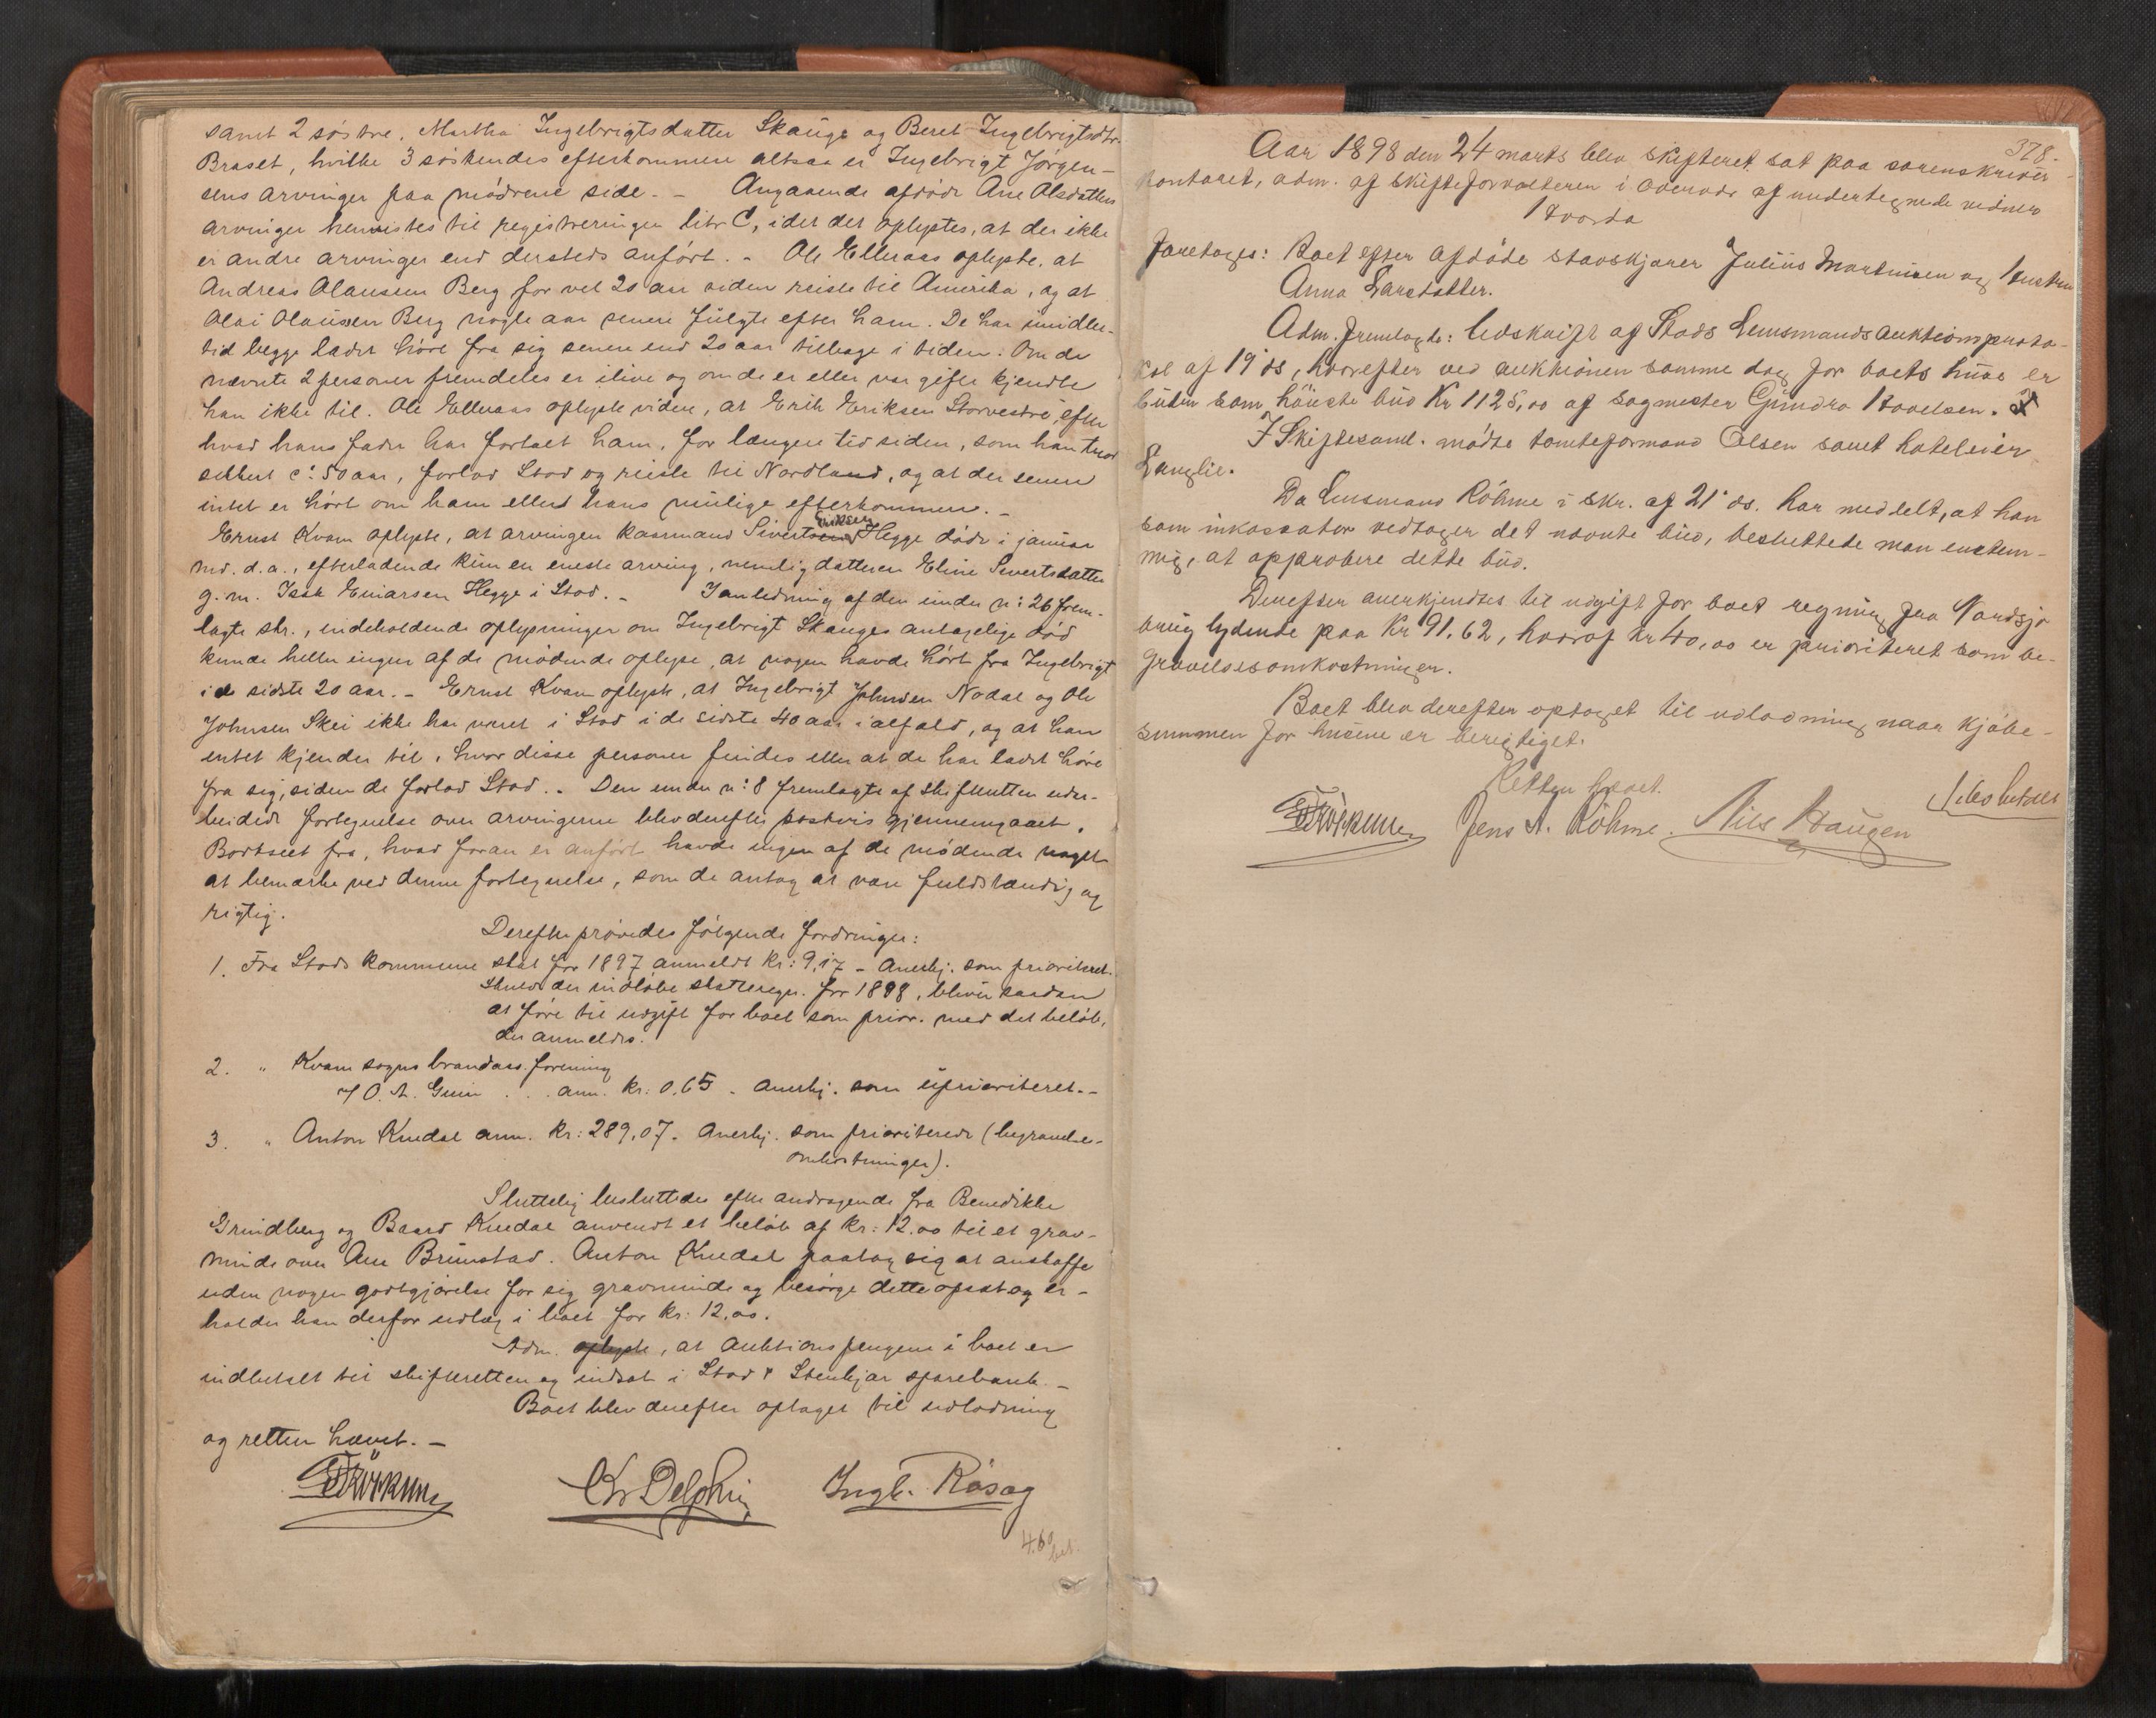 samt 2 söstre, Martha Ingebrigtsdatter Skauge og Beret Ingebrigtsdtr.
Braset, hvilke 3 söskendes efterkommere altsaa er Ingebrigt Jörgen-
sens arvinger paa mödrene side. – Angaaende afdöde Ane Olsdatters
arvinger henvistes til registreringen litr C, idet det oplystes, at der ikke
er andre arvinger end dersteds anfört. – Ole Elleraas oplyste, at
Andreas Olausen Berg for vel 20 aar siden reiste til Amerika, og at
Olai Olausen Berg nogle aar senere fulgte efter ham. De har imidler-
tid begge ladet höre fra sig senere end 20 aar tilbage i tiden. Om de
nævnte 2 personer fremdeles er ilive og om de er eller var gifte kjendte
han ikke til. Ole Elleraas oplyste videre, at Erik Eriksen Storvestre, efter
hvad hans fader har fortalt ham, for længere tid siden, som han tror
sikkert c: 50 aar, forlod Stod og reiste til Nordland, og at der senere
intet er hört om ham eller hans mulige efterkommere. –
Ernst Kvam oplyste, at arvingen kaarmand Sivert Eriksen Hegge döde i januar
md. d.a., efterladende kun en eneste arving, nemlig datteren Eline Sivertsdatter
g. m. Isak Einarsen Hegge i Stod. – I anledning af den under n: 26 frem-
lagte skr., indeholdende oplysninger om Ingebrigt Skauges antagelige död
kunde heller ingen af de mödende oplyse, at nogen havde hört fra Ingebrigt
i de sidste 20 aar. – Ernst Kvam oplyste, at Ingebrigt Johnsen Nodal og Ole
Johnsen Skei ikke har været i Stod i de sidste 40 aar ialfald, og at han
intet kjender til, hvor disse personer findes eller at de har ladet höre
fra sig, siden de forlod Stod. – Den under n: 8 fremlagte af skifteretten udar-
beidede fortegnelse over arvingerne blev derefter postvis gjennemgaaet.
Bortseet fra, hvad foran er anfört havde ingen af de mödende noget
at bemærke ved denne fortegnelse, som de antog at være fuldstændig og
rigtig.
Derefter prövedes fölgende fordringer:
1. Fra Stods kommune skat for 1897 anmeldt kr: 9,17 – Anerkj. som prioriteret.
Skulde der indlöbe skatteregn. for 1898, bliver saadan
at före til udgift for boet som prior. med det belöb,
der anmeldes.
2. " Kvam sogns brandass. forening
v/ O. A. Guin . . . anm. kr: 0,65 . Anerkj. som uprioriteret. –
3. " Anton Kuedal anm. kr: 289,07. Anerkj. som prioriterede (begravelses-
omkostninger).
Sluttelig besluttedes efter andragende fra Benedikte
Grindberg og Baard Kuedal anvendt et belöb af kr: 12,00 til et grav-
minde over Ane Brunstad. Anton Kuedal paatog sig at anskaffe
uden nogen godtgjörelse for sig gravminde og besörge dette opsat og er-
holder han derfor udlæg i boet for kr: 12,00.
Adm. oplyste, at auktionspengene i boet er
indbetalt til skifteretten og indsat i Stod & Stenkjær sparebank. –
Boet blev derefter optaget til udlodning
og retten hævet. –
Chr Delphin Ingb. Rösæg
4.60 bet.
378.
Aar 1898 den 24 marts blev skifteret sat paa sorenskriver-
kontoret, adm. af skifteforvalteren i overvær af undertegnede vidner
Hvorda
Foretoges: Boet efter afdöde stavskjærer Julius Martinsen og hustru
Anna Larsdatter.
Adm. fremlagde: Udskrift af Stods Lensmands auktionsproto-
kol af 19 ds, hvorefter ved auktionen samme dag for boets huse er
buden som höieste bud Kr 1128,00 af sagmester Gundro Hovelsen.
I Skiftesaml. mödte tomteformand Olsen samt hoteleier
Langlie.
Da Lensmand Röhme i skr. af 21 ds. har meddelt, at han
som inkassator vedtager det nævnte bud, besluttede man enstem-
mig, at approbere dette bud.
Derefter anerkjendtes til udgift for boet regning fra Nordsjö
brug lydende paa Kr 91.62, hvoraf kr 40,00 er prioriteret som be-
gravelsesomkostninger.
Boet blev derefter optaget til udlodning naar kjöbe-
summen for husene er berigtiget.
Retten hævet.
Jens A. Röhme. Nils Haugen
1,60 betalt